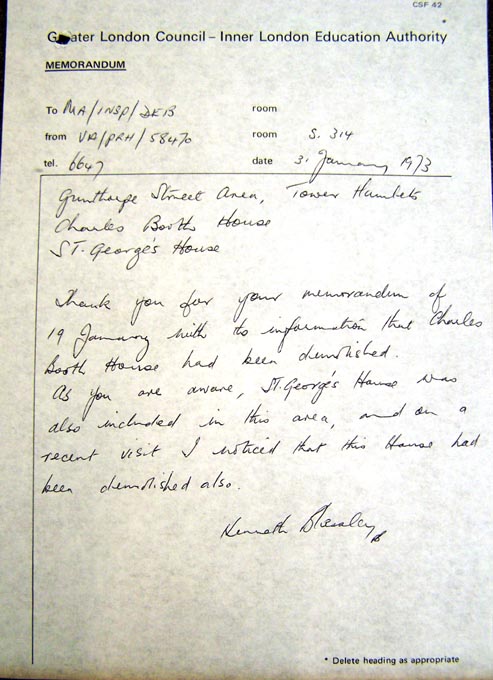 CSF 42
Greater London Council – Inner London Education Authority *
MEMORANDUM
To MA/INSP/DEB room
from VA/PRH/58470 room S. 314
tel. 6647 date 31 January 1973
Gunthorpe Street Area, Tower Hamlets
Charles Booth House
ST. George's House
Thank you for your memorandum of
19 January with its information that Charles
Booth House had been demolished.
As you are aware, ST. George's House was
also included in this area, and on a
recent visit I noticed that this House had
been demolished also.
Kenneth
* Delete heading as appropriate